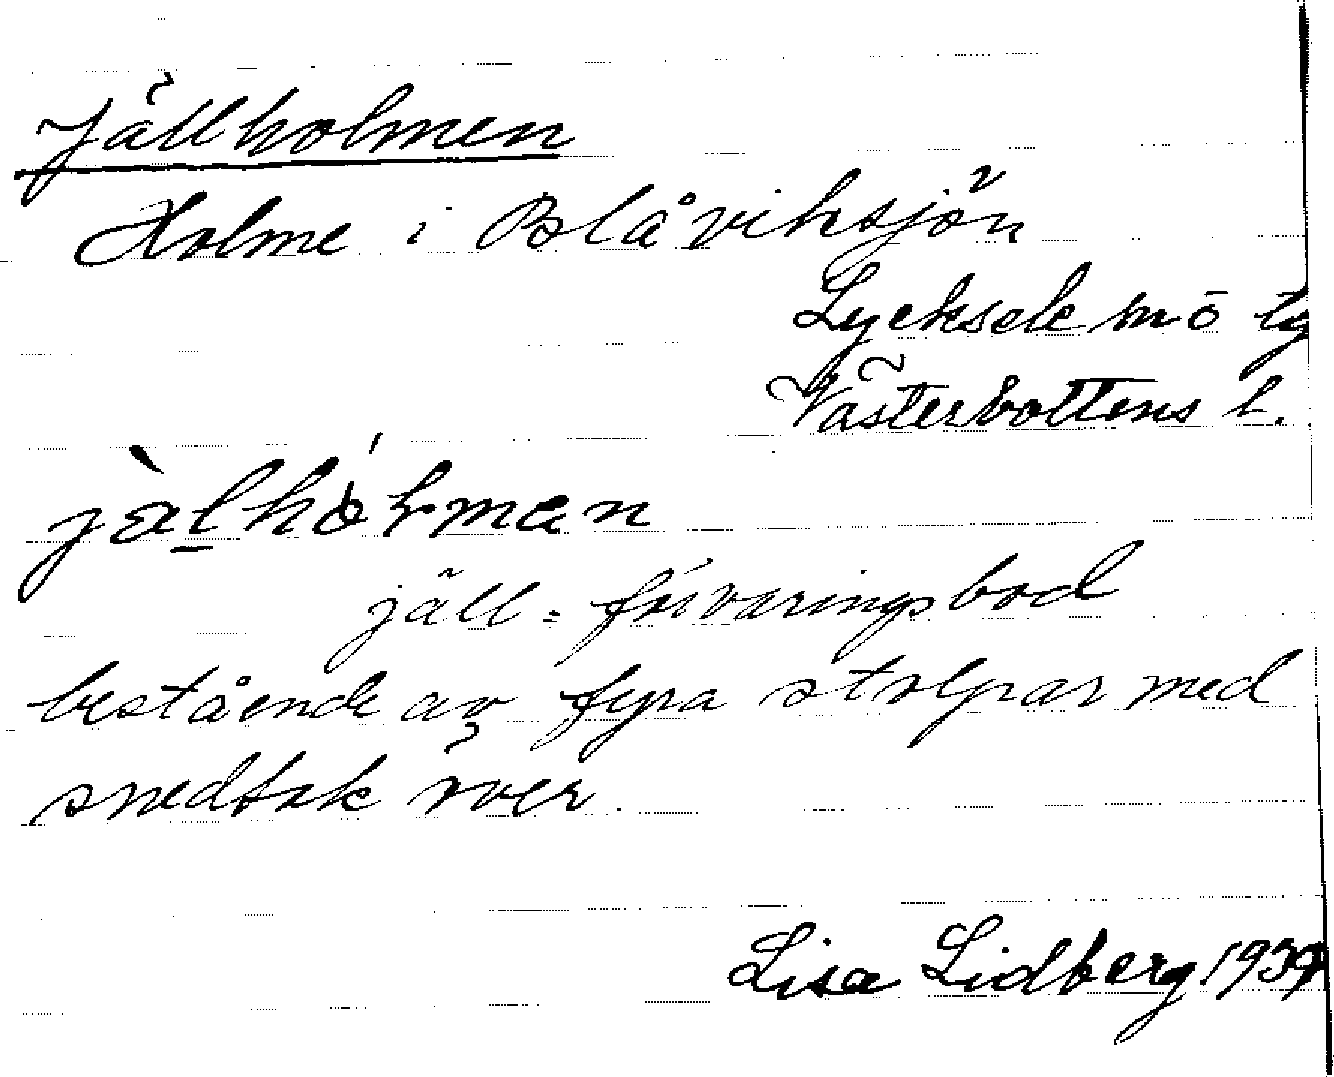 Jällholmen
Holme i Blåviksjön
Lycksele
Västerbottens l.
jäll = förvaringsbod
bestående av fyra stolpar med
snedtak över.
Lisa Lidberg 1937